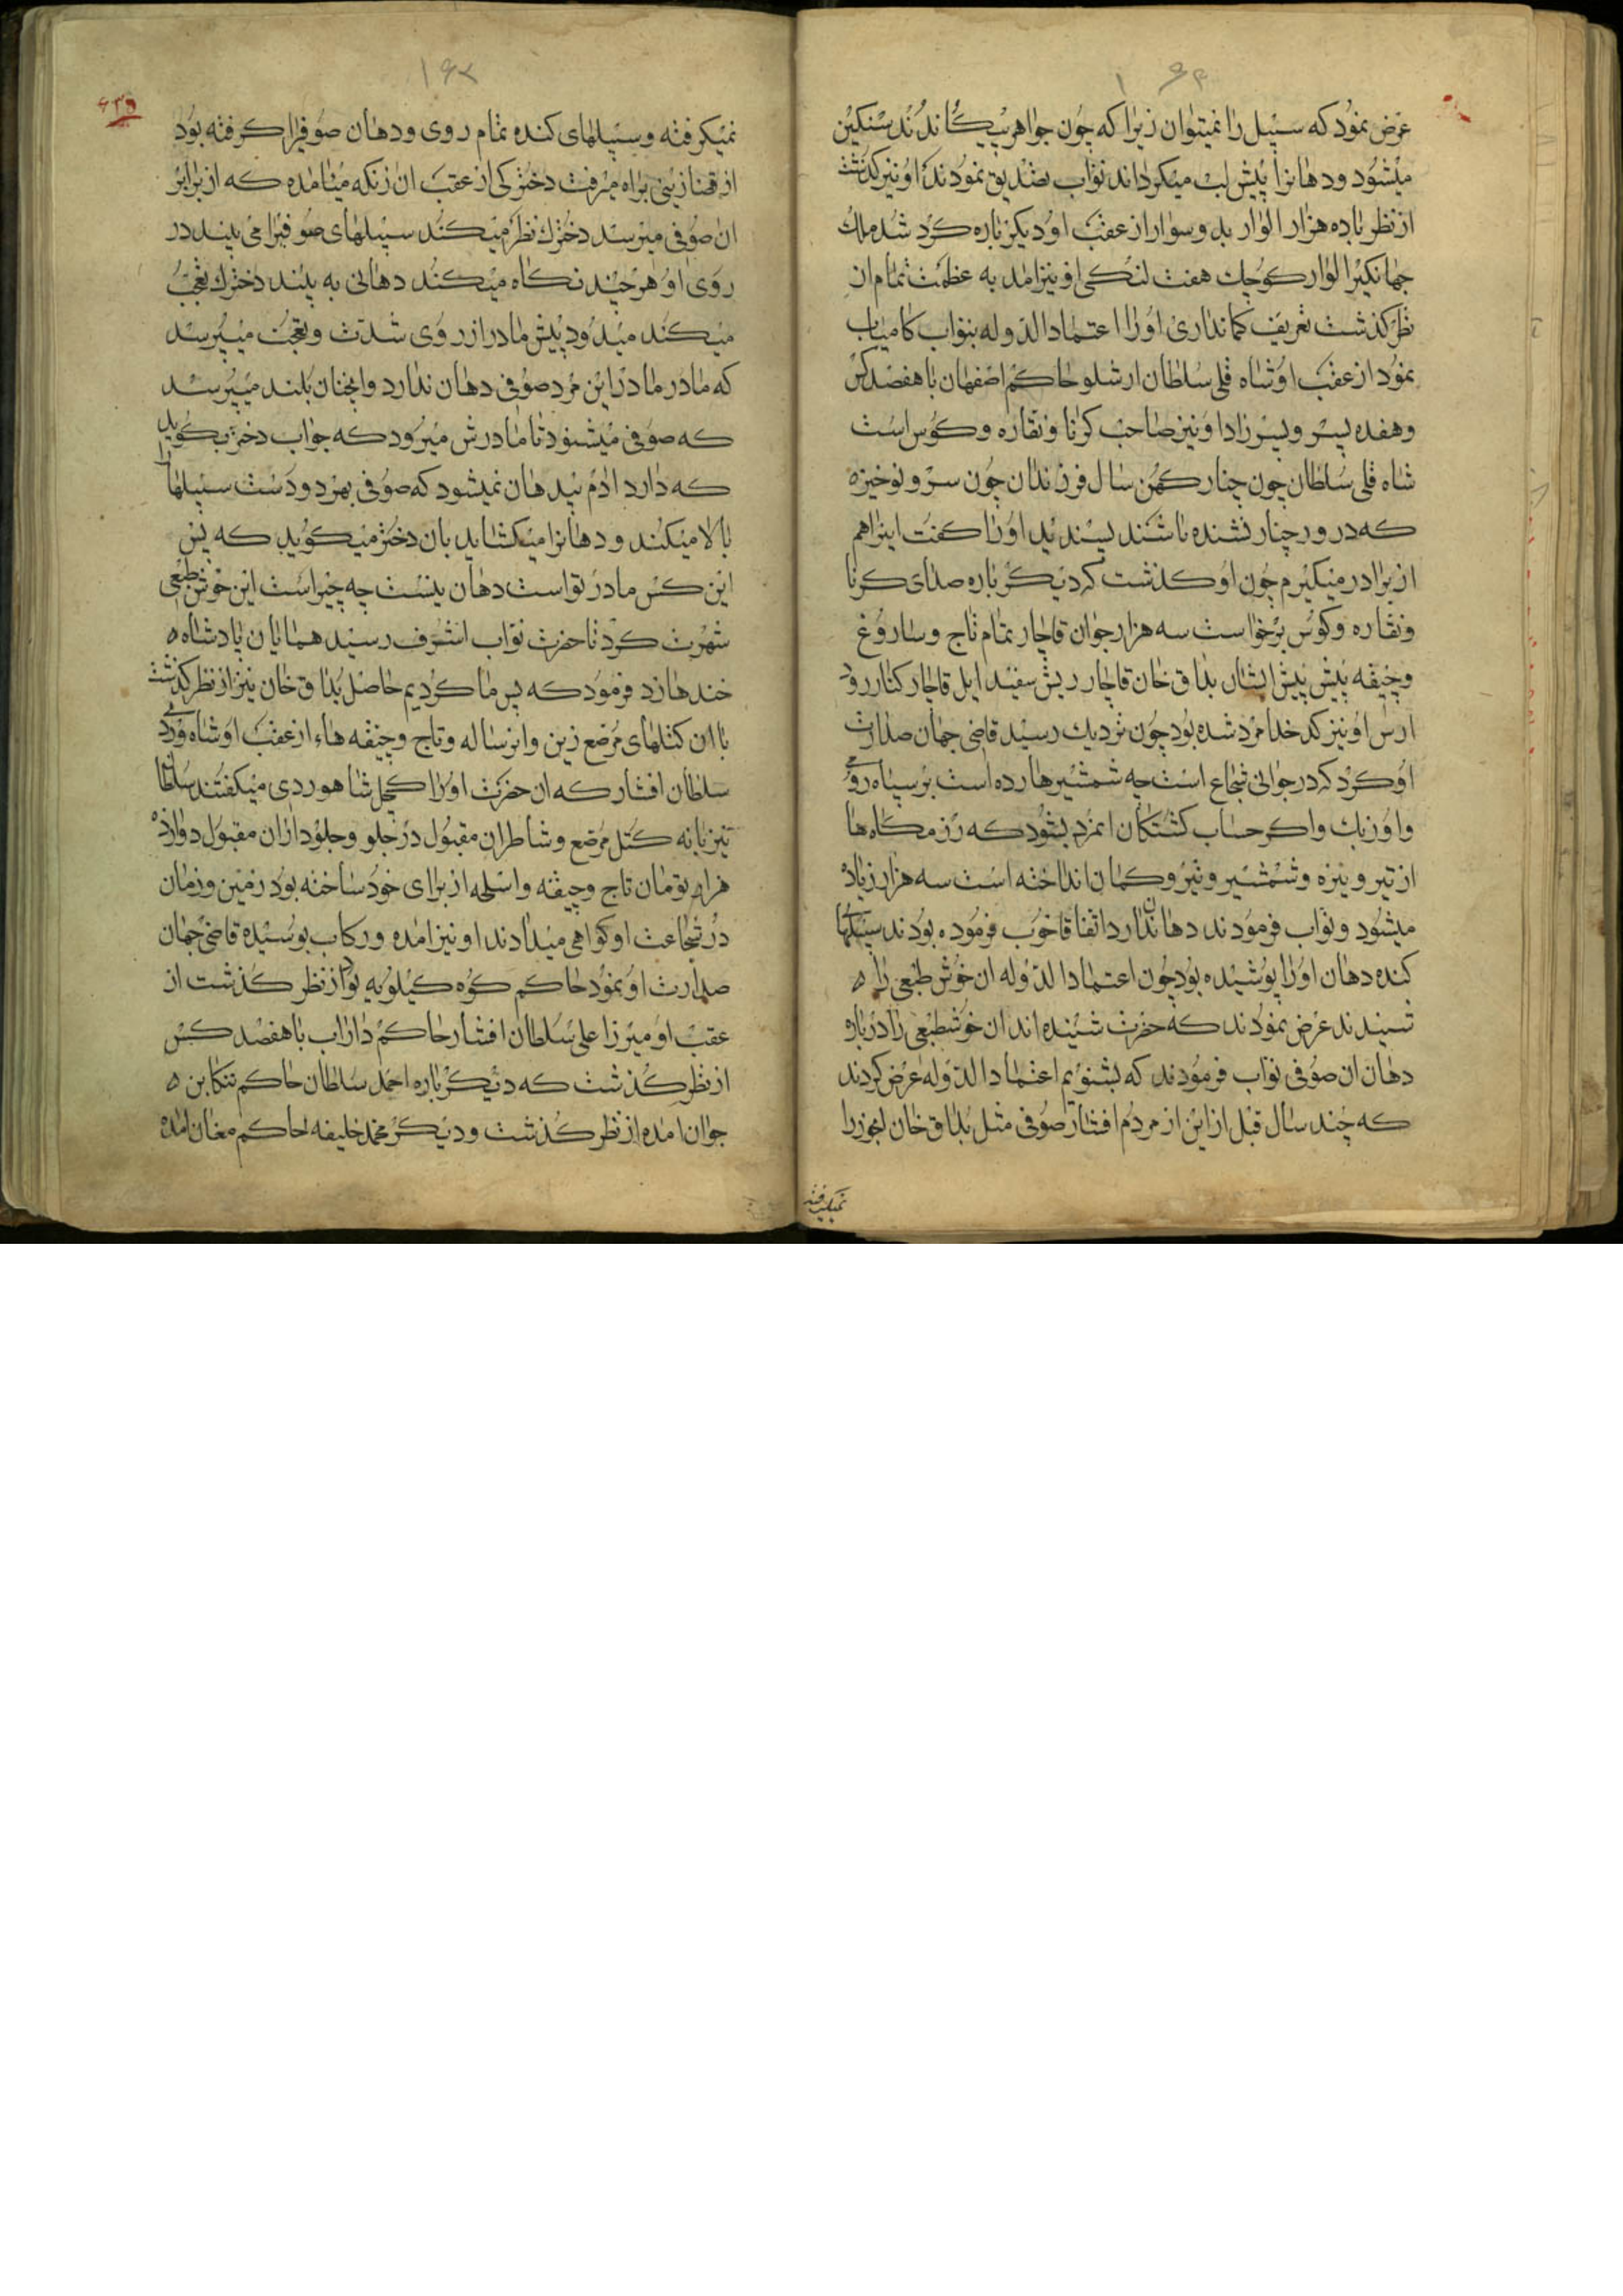 عرض نمود که سبیل را نمیتوان زیرا که چون جواهر بیکاندند سنکین
میشود و دهانرا پیش لب میکرداند نواب تصدیق نمودند او نیز کذشت
از نظر با ده هزار الوار بد و سوار از عقب او دیکر باره کرد شد ملک
جهانکیر الوار کوچک هفت لنکی او نیز امد به عظمت تمام از
نظر کذشت تعریف کمانداری او را اعتماد الدوله بنواب کامیاب
نمود از عقب او شاه قلی سلطان ارشلو حاکم اصفهان با هفصد کس
و هفده پسر و پسر زادا و نیز صاحب کرنا و نقاره و کوس است
شاه قلی سلطان چون چنار کهن سال فرزندان چون سرو نوخیزه
که در ور چنار نشنده باشند پسندید او را کفت اینرا هم
از برادر میکیرم چون او کذشت که دیکر باره صدای کرنا
و نقاره و کوس برخواست سه هزار جوان قاجار تمام تاج و ساروغ
و جیقه پیش پیش ایشان بداق خان قاجار ریش سفید ایل قاجار کنار رود
ارس او نیز کدخدا مرد شده بود چون نزدیک رسید قاضی جهان صدارت
او کرد که در جوانی شجاع است چه شمشیرها زده است بر سپاه رومی
و اوزبک و اکر حساب کشتکان انمرد بشود که رزمکاه ها
از تیر و نیزه و شمشیر و تیر و کمان انداخته است سه هزار زیاد
میشود و نواب فرمودند دهان ندارد اتفاقا خوب فرموده بودند سبیلهای
کنده دهان او را پوشیده بود چون اعتماد الدوله ان خوش طبعی را
شنیدند عرض نمودند که حضرت شنیده اند ان خوشطبعی را در باره
دهان ان صوفی نواب فرمودند که بشنویم اعتماد الدوله عرض کردند
که چند سال قبل ازاین از مردم افشار صوفی مثل بداق خان لغوز را
نمیکرفته
نمیکرفته و سبیلهای کنده تمام روی و دهان صوفیرا کرفته بود
از قضا زینی براه میرفت دخترکی از عقب ان زنکه میامده که از برابر
ان صوفی میرسد دخترک نظر میکند سبیلهای صوفیرا می بیند در
روی او هر چند نکاه میکند دهانی به بیند دخترک تعجب
میکند میدود پیش مادر از روی شدت و تعجب میپرسد
که مادر مادر این مرد صوفی دهان ندارد و انچنان بلند میپرسد
که صوفی میشنود تا مادرش میرود که جواب دختر بکوید
که دارد ادم بیدهان نمیشود که صوفی بهر دو دست سبیلها را
بالا میکند و دهانرا میکشاید بان دختر میکوید که پس
این کس مادر تواست دهان نیست چه چیز است این خوش طبعی
شهرت کرد تا حضرت نواب اشرف رسید همایان پادشاه
خندها زد فرمود که پس ما کردیم حاصل بداق خان نیز از نظر کذشت
با ان کتلهای مرضع زین و ابرساله و تاج و جیقه هاء از عقب او شاه وردی
سلطان افشار که ان حضرت او را کچل شاهوردی میکفتند سلطان
نیز با نه کتل مرضع و شاطران مقبول در جلو و جلودازان مقبول دوازده
هزار تومان تاج و جیقه و اسلحه از برای خود ساخته بود زمین و زمان
در شجاعت او کواهی میدادند او نیز امده و رکاب بوسیده قاضی جهان
صدارت او نمود حاکم کوه کیلویه بود از نظر کذشت از
عقب او میرزا علی سلطان افشار حاکم داراب با هفصد کس
از نظر کذشت که دیکر باره احمد سلطان حاکم تنکابن
جوان امده از نظر کذشت و دیکر محمد خلیفه حاکم مغان امده